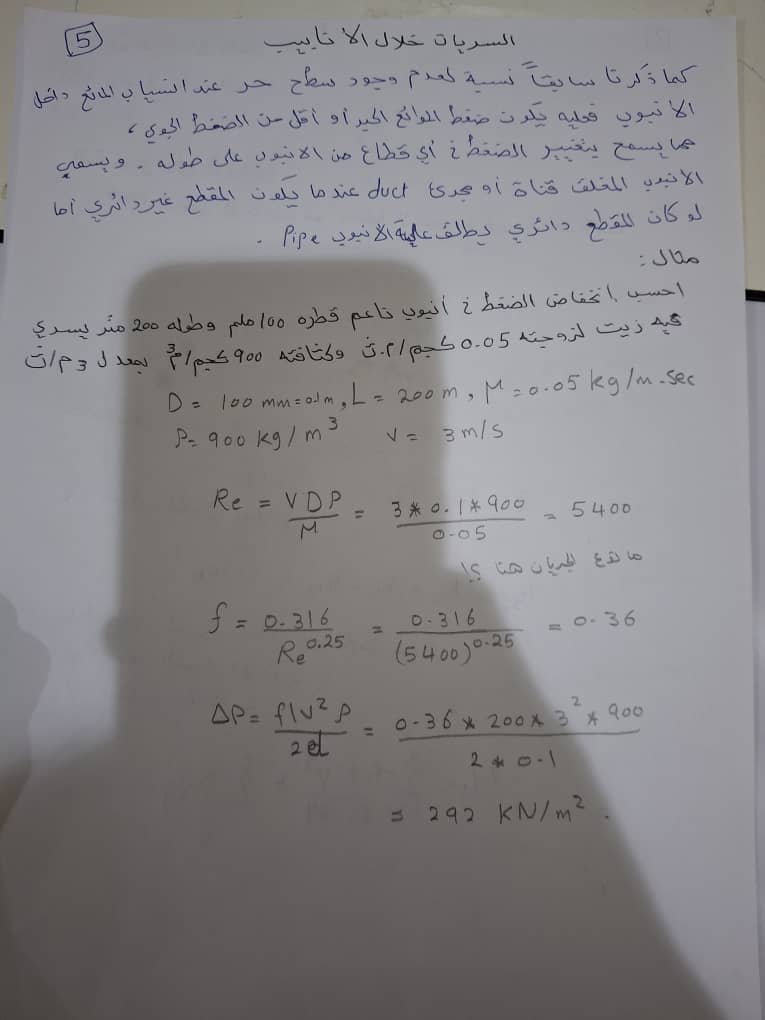 5
السريات خلال الانابيب
كما ذكرنا سابقاً نسبة لعدم وجود سطح حر عند انسياب المائع داخل
الانبوب فعليه يكون ضغط الموائع اكبر أو أقل من الضغط الجوي ،
مما يسمح بتغيير الضغط في أي قطاع من الانبوب على طوله . ويسمى
الانبوب المغلق قناة أو مجرى duct عندما يكون المقطع غير دائري أما
لو كان المقطع دائري يطلق عليه الانبوب Pipe .
مثال :
احسب إنخفاض الضغط في أنبوب ناعم قطره 100 ملم وطوله 200 متر يسري
فيه زيت لزوجته 0.05 كجم/م.ث وكثافته 900 كجم/م3 بمعدل 3 م/ث
D = 100 mm=0.1m , L = 200 m , M = 0.05 kg/m.sec
P= 900 kg/m3 V = 3 m/s
Re = VDP/M = 3*0.1*900/0.05 = 5400
ما نوع الجريان هنا ؟!
f = 0.316/Re0.25 = 0.316/(5400)0.25 = 0.36
ΔP = flv2 P/2d = 0.36*200*32*900/2*0.1
= 292 KN/m2 .